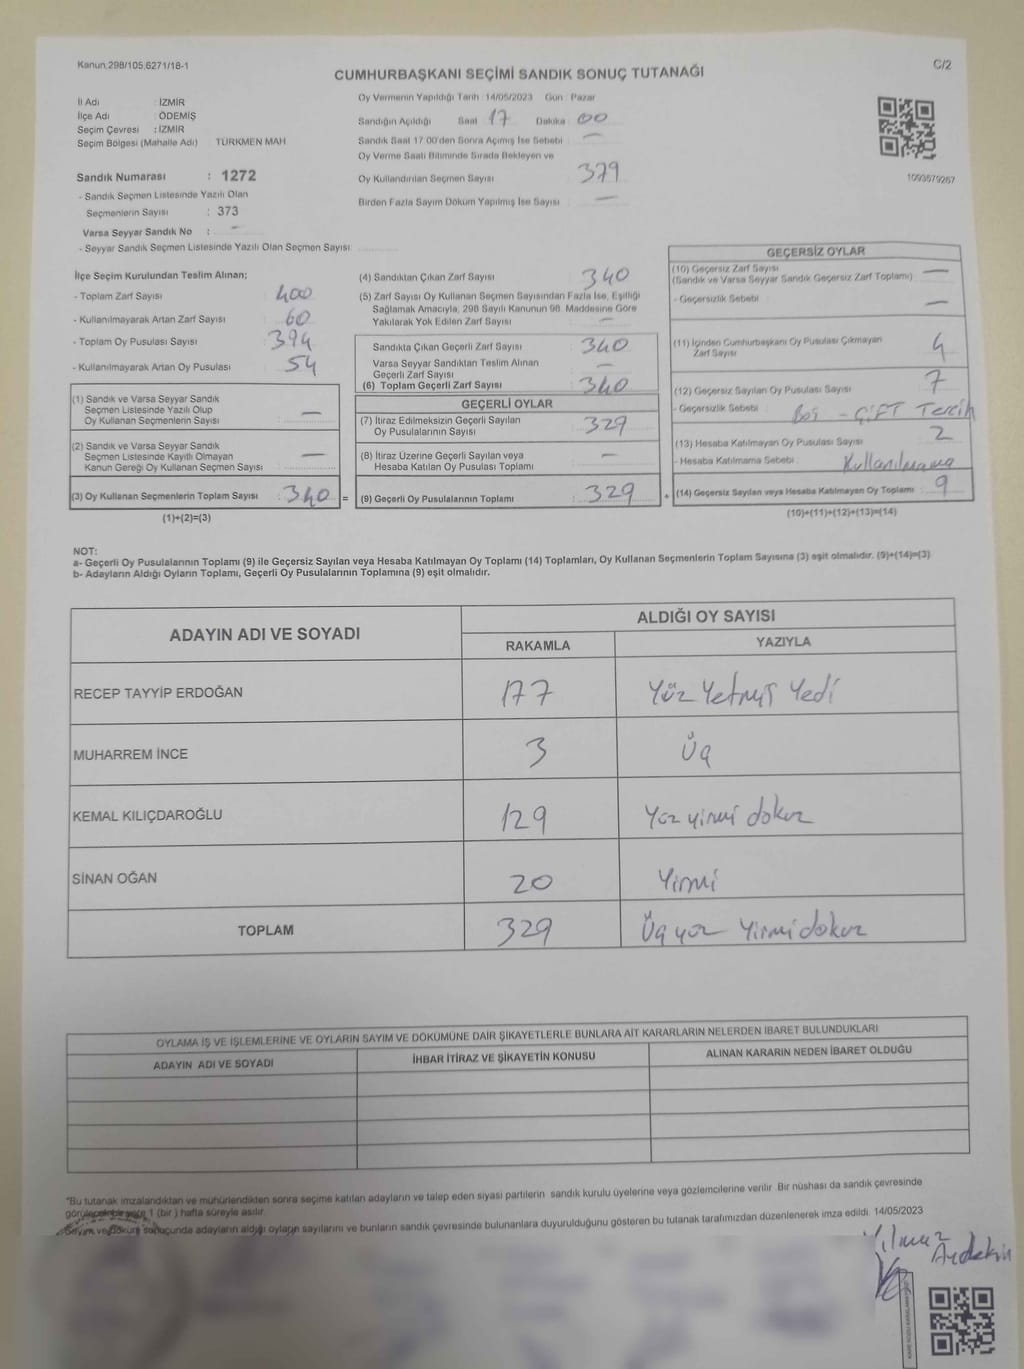 Kanun:298/105,6271/18-1
C/2
CUMHURBAŞKANI SEÇİMİ SANDIK SONUÇ TUTANAĞI
İl Adı : İZMİR
İlçe Adı : ÖDEMİŞ
Seçim Çevresi : İZMİR
Seçim Bölgesi (Mahalle Adı) TÜRKMEN MAH
Sandık Numarası : 1272
- Sandık Seçmen Listesinde Yazılı Olan
Seçmenlerin Sayısı : 373
Varsa Seyyar Sandık No : -
- Seyyar Sandık Seçmen Listesinde Yazılı Olan Seçmen Sayısı
Oy Vermenin Yapıldığı Tarih :14/05/2023 Gün : Pazar
Sandığın Açıldığı Saat 17 Dakika : 00
Sandık Saat 17 00'den Sonra Açımış İse Sebebi : -
Oy Verme Saati Bitiminde Sırada Bekleyen ve
Oy Kullandırılan Seçmen Sayısı 379
Birden Fazla Sayım Döküm Yapılmış İse Sayısı -
1093579267
İlçe Seçim Kurulundan Teslim Alınan;
- Toplam Zarf Sayısı : 400
- Kullanılmayarak Artan Zarf Sayısı : 60
- Toplam Oy Pusulası Sayısı : 394
- Kullanılmayarak Artan Oy Pusulası : 54
(1) Sandık ve Varsa Seyyar Sandık
Seçmen Listesinde Yazılı Olup
Oy Kullanan Seçmenlerin Sayısı -
(2) Sandık ve Varsa Seyyar Sandık
Seçmen Listesinde Kayıtlı Olmayan
Kanun Gereği Oy Kullanan Seçmen Sayısı -
(3) Oy Kullanan Seçmenlerin Toplam Sayısı : 340 =
(1)+(2)=(3)
(4) Sandıktan Çıkan Zarf Sayısı : 340
(5) Zarf Sayısı Oy Kullanan Seçmen Sayısından Fazla İse, Eşitliği
Sağlamak Amacıyla, 298 Sayılı Kanunun 98. Maddesine Göre
Yakılarak Yok Edilen Zarf Sayısı : -
Sandıkta Çıkan Geçerli Zarf Sayısı : 340
Varsa Seyyar Sandıktan Teslim Alınan
Geçerli Zarf Sayısı : -
(6) Toplam Geçerli Zarf Sayısı : 340
GEÇERLİ OYLAR
(7) İtiraz Edilmeksizin Geçerli Sayılan
Oy Pusulalarının Sayısı : 329
(8) İtiraz Üzerine Geçerli Sayılan veya
Hesaba Katılan Oy Pusulası Toplamı : -
(9) Geçerli Oy Pusulalarının Toplamı : 329 +
GEÇERSİZ OYLAR
(10) Geçersiz Zarf Sayısı
(Sandık ve Varsa Seyyar Sandık Geçersiz Zarf Toplamı) : -
- Geçersizlik Sebebi : -
(11) İçinden Cumhurbaşkanı Oy Pusulası Çıkmayan
Zarf Sayısı 4
(12) Geçersiz Sayılan Oy Pusulası Sayısı : 7
- Geçersizlik Sebebi : Boş - ÇİFT Tercih
(13) Hesaba Katılmayan Oy Pusulası Sayısı : 2
- Hesaba Katılmama Sebebi :
(14) Geçersiz Sayılan veya Hesaba Katılmayan Oy Toplamı : 9
(10)+(11)+(12)+(13)=(14)
NOT:
a- Geçerli Oy Pusulalarının Toplamı (9) ile Geçersiz Sayılan veya Hesaba Katılmayan Oy Toplamı (14) Toplamları, Oy Kullanan Seçmenlerin Toplam Sayısına (3) eşit olmalıdır. (9)+(14)=(3)
b- Adayların Aldığı Oyların Toplamı, Geçerli Oy Pusulalarının Toplamına (9) eşit olmalıdır.
ADAYIN ADI VE SOYADI
ALDIĞI OY SAYISI
RAKAMLA YAZIYLA
RECEP TAYYİP ERDOĞAN 177 Yüz Yetmiş Yedi
MUHARREM İNCE 3 Üç
KEMAL KILIÇDAROĞLU 129 Yüz yirmi dokuz
SİNAN OĞAN 20 Yirmi
TOPLAM 329 Üç yüz Yirmi dokuz
OYLAMA İŞ VE İŞLEMLERİNE VE OYLARIN SAYIM VE DÖKÜMÜNE DAİR ŞİKAYETLERLE BUNLARA AİT KARARLARIN NELERDEN İBARET BULUNDUKLARI
ADAYIN ADI VE SOYADI İHBAR İTİRAZ VE ŞİKAYETİN KONUSU ALINAN KARARIN NEDEN İBARET OLDUĞU
"Bu tutanak imzalandıktan ve mühürlendikten sonra seçime katılan adayların ve talep eden siyasi partilerin sandık kurulu üyelerine veya gözlemcilerine verilir. Bir nüshası da sandık çevresinde
görülecek bir yere 1 (bir ) hafta süreyle asılır.
Sayım ve döküm sonuçunda adayların aldığı oyların sayılarını ve bunların sandık çevresinde bulunanlara duyurulduğunu gösteren bu tutanak tarafımızdan düzenlenerek imza edildi. 14/05/2023
Yılmaz